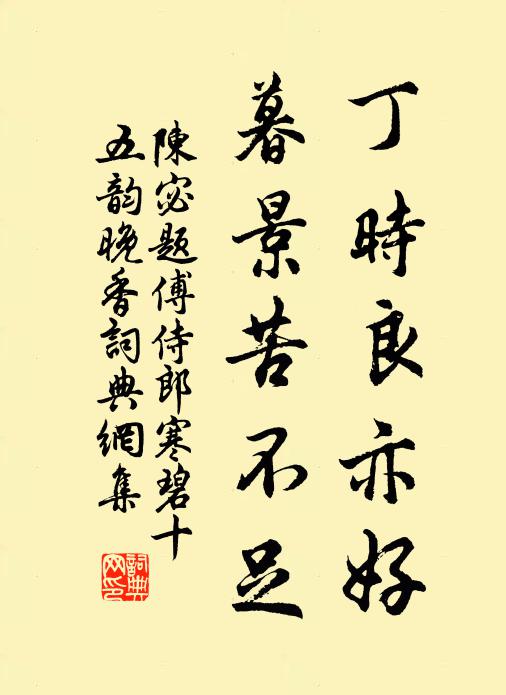 丁時良亦好
暮景苦不足
陳宓題傅侍郎寒碧十
五韵晚香詞典網集
詞典网印